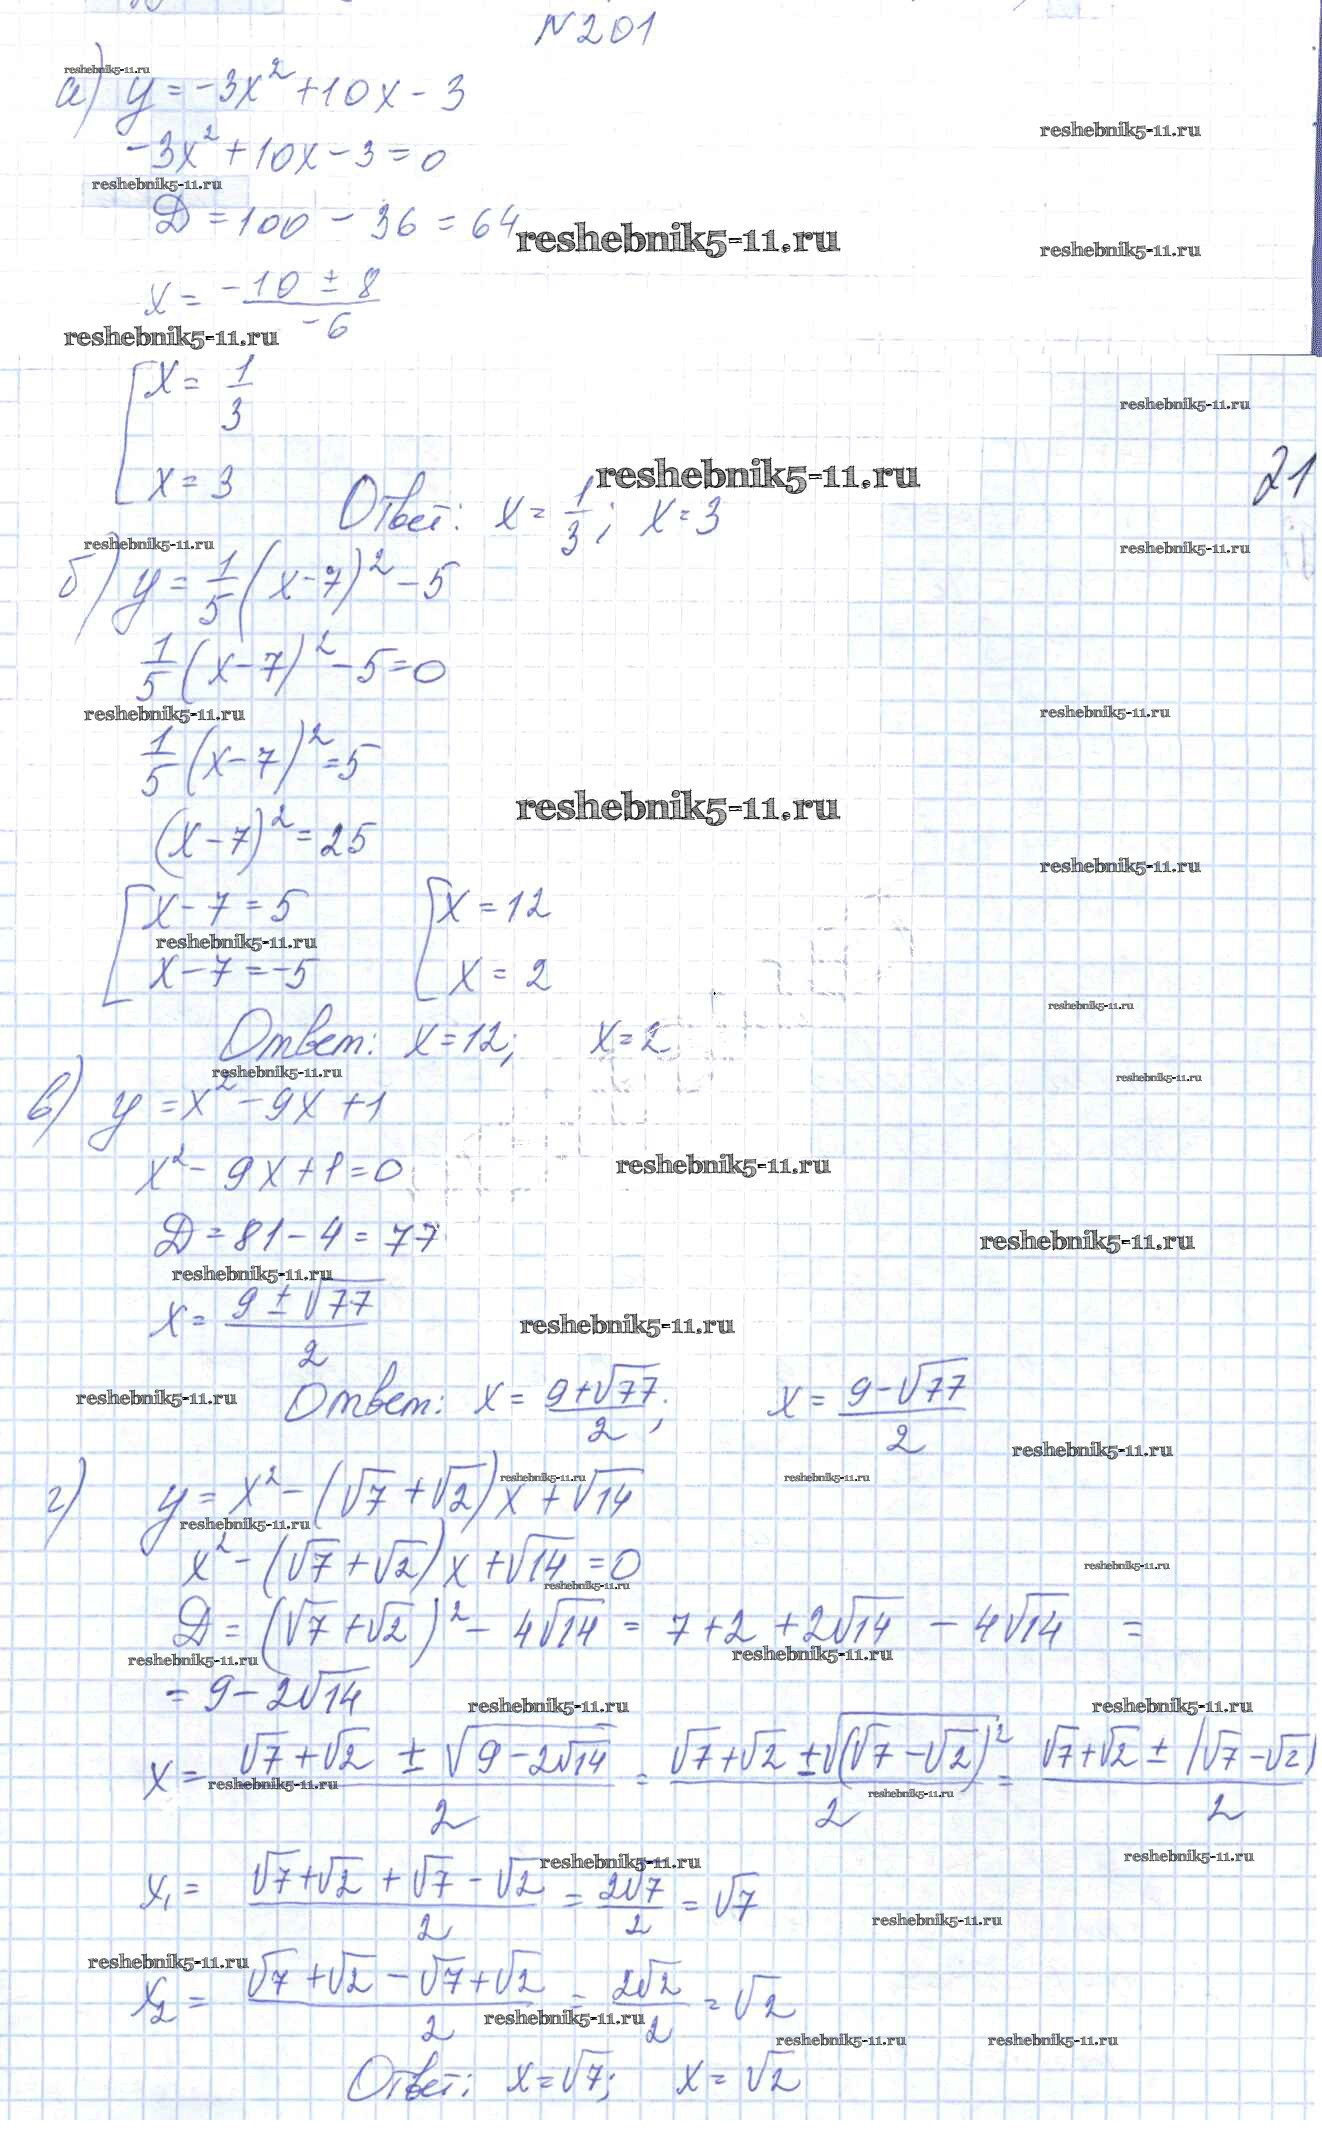 N 201
reshebnik5-11.ru
а) y = -3x² + 10x - 3
reshebnik5-11.ru
-3x² + 10x - 3 = 0
reshebnik5-11.ru
D = 100 - 36 = 64
reshebnik5-11.ru
reshebnik5-11.ru
x = (-10 ± 8)/(-6)
reshebnik5-11.ru
[ x = 1/3
reshebnik5-11.ru
x = 3
reshebnik5-11.ru
21
Ответ: x = 1/3; x = 3
reshebnik5-11.ru
reshebnik5-11.ru
б) y = 1/5 (x - 7)² - 5
1/5 (x - 7)² - 5 = 0
reshebnik5-11.ru
reshebnik5-11.ru
1/5 (x - 7)² = 5
reshebnik5-11.ru
(x - 7)² = 25
reshebnik5-11.ru
[ x - 7 = 5 [ x = 12
reshebnik5-11.ru
x - 7 = -5 x = 2
reshebnik5-11.ru
Ответ: x = 12; x = 2
reshebnik5-11.ru
reshebnik5-11.ru
в) y = x² - 9x + 1
x² - 9x + 1 = 0
reshebnik5-11.ru
D = 81 - 4 = 77
reshebnik5-11.ru
reshebnik5-11.ru
x = (9 ± √77)/2
reshebnik5-11.ru
reshebnik5-11.ru
Ответ: x = (9 + √77)/2; x = (9 - √77)/2
reshebnik5-11.ru
reshebnik5-11.ru
reshebnik5-11.ru
г) y = x² - (√7 + √2)x + √14
reshebnik5-11.ru
x² - (√7 + √2)x + √14 = 0
reshebnik5-11.ru
reshebnik5-11.ru
D = (√7 + √2)² - 4√14 = 7 + 2 + 2√14 - 4√14 =
reshebnik5-11.ru
reshebnik5-11.ru
= 9 - 2√14
reshebnik5-11.ru
reshebnik5-11.ru
x = (√7 + √2 ± √(9 - 2√14))/2 = (√7 + √2 ± √((√7 - √2)²))/2 = (√7 + √2 ± |√7 - √2|)/2
reshebnik5-11.ru
reshebnik5-11.ru
reshebnik5-11.ru
reshebnik5-11.ru
x₁ = (√7 + √2 + √7 - √2)/2 = 2√7/2 = √7
reshebnik5-11.ru
reshebnik5-11.ru
x₂ = (√7 + √2 - √7 + √2)/2 = 2√2/2 = √2
reshebnik5-11.ru
reshebnik5-11.ru
reshebnik5-11.ru
Ответ: x = √7; x = √2